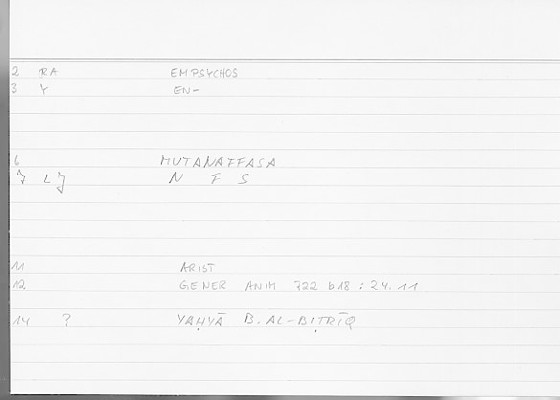 2 RA EMPSYCHOS
3 Y EN-
6 MUTANAFFASA
7 L N F S
11 ARIST
12 GENER ANIM 722 b18 : 24.11
14 ? YAḤYĀ B. AL-BIṬRĪQ